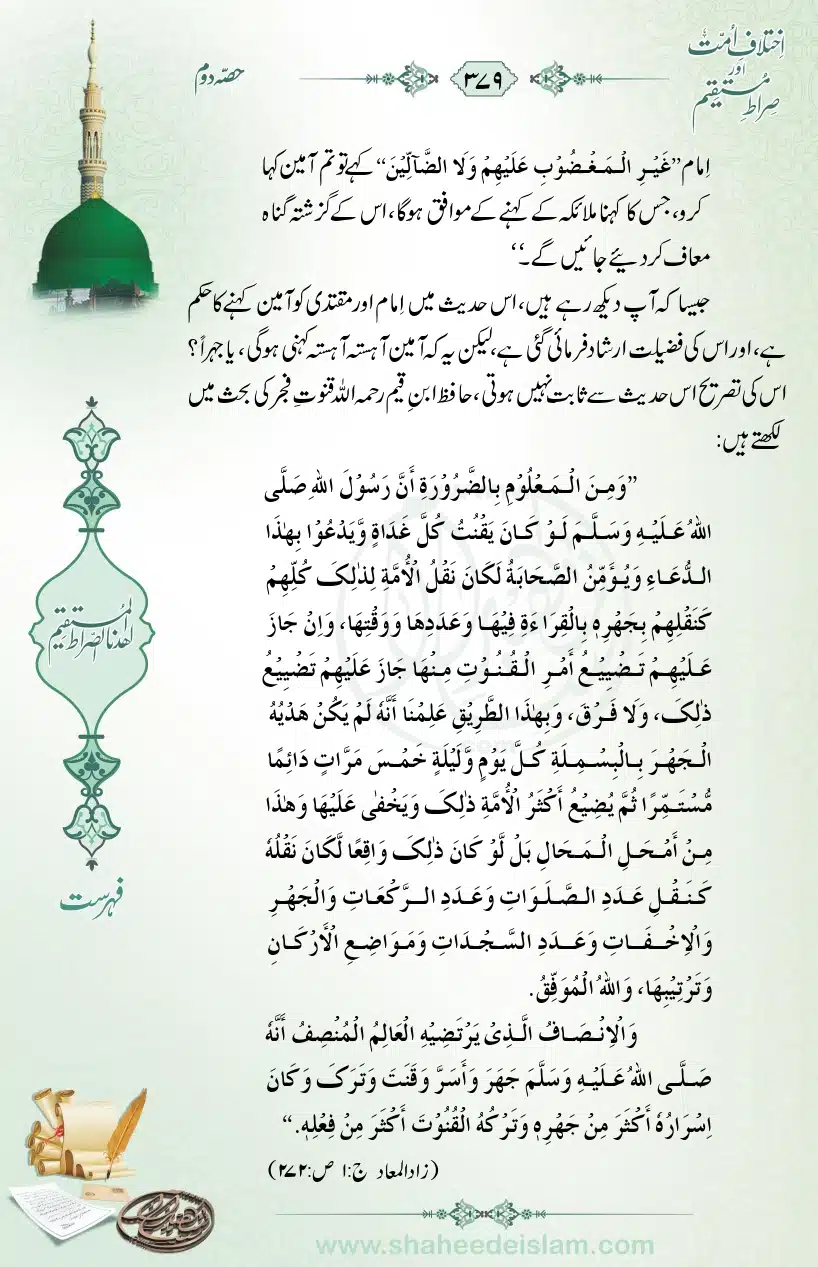 اِختلافِ اُمّت
اور
صراطِ مُستقیم
۳۷۹
حصّہ دوم
اِمام ”غَیْرِ الْمَغْضُوْبِ عَلَیْهِمْ وَلَا الضَّآلِّیْنَ“ کہے تو تم آمین کہا
کرو، جس کا کہنا ملائکہ کے کہنے کے موافق ہوگا، اس کے گزشتہ گناہ
معاف کردیئے جائیں گے۔“
جیسا کہ آپ دیکھ رہے ہیں، اس حدیث میں اِمام اور مقتدی کو آمین کہنے کا حکم
ہے، اور اس کی فضیلت ارشاد فرمائی گئی ہے، لیکن یہ کہ آمین آہستہ آہستہ کہنی ہوگی، یا جہراً؟
اس کی تصریح اس حدیث سے ثابت نہیں ہوتی، حافظ ابنِ قیم رحمہ اللہ قنوتِ فجر کی بحث میں
لکھتے ہیں:
”وَمِنَ الْمَعْلُوْمِ بِالضَّرُوْرَةِ أَنَّ رَسُوْلَ اللهِ صَلَّى
اللهُ عَلَيْهِ وَسَلَّمَ لَوْ كَانَ يَقْنُتُ كُلَّ غَدَاةٍ وَّيَدْعُوْا بِهٰذَا
الدُّعَاءِ وَيُؤَمِّنُ الصَّحَابَةُ لَكَانَ نَقْلُ الْأُمَّةِ لِذٰلِکَ كُلِّهِمْ
كَنَقْلِهِمْ بِجَهْرِهٖ بِالْقِرَاءَةِ فِيْهَا وَعَدَدِهَا وَوَقْتِهَا، وَاِنْ جَازَ
عَلَيْهِمْ تَضْيِيْعُ أَمْرِ الْقُنُوْتِ مِنْهَا جَازَ عَلَيْهِمْ تَضْيِيْعُ
ذٰلِکَ، وَلَا فَرْقَ، وَبِهٰذَا الطَّرِيْقِ عَلِمْنَا أَنَّهٗ لَمْ يَكُنْ هَدْيُهُ
الْجَهْرَ بِالْبِسْمِلَةِ كُلَّ يَوْمٍ وَّلَيْلَةٍ خَمْسَ مَرَّاتٍ دَائِمًا
مُّسْتَمِّرًا ثُمَّ يُضِيْعُ أَكْثَرُ الْأُمَّةِ ذٰلِکَ وَيَخْفٰى عَلَيْهَا وَهٰذَا
مِنْ أَمْحَلِ الْمَحَالِ بَلْ لَّوْ كَانَ ذٰلِکَ وَاقِعًا لَّكَانَ نَقْلُهٗ
كَنَقْلِ عَدَدِ الصَّلَوَاتِ وَعَدَدِ الرَّكْعَاتِ وَالْجَهْرِ
وَالْاِخْفَاتِ وَعَدَدِ السَّجْدَاتِ وَمَوَاضِعِ الْأَرْكَانِ
وَتَرْتِيْبِهَا، وَاللهُ الْمُوَفِّقُ.
وَالْاِنْصَافُ الَّذِيْ يَرْتَضِيْهِ الْعَالِمُ الْمُنْصِفُ أَنَّهٗ
صَلَّى اللهُ عَلَيْهِ وَسَلَّمَ جَهَرَ وَأَسَرَّ وَقَنَتَ وَتَرَکَ وَكَانَ
اِسْرَارُهٗ أَكْثَرَ مِنْ جَهْرِهٖ وَتَرْكُهُ الْقُنُوْتَ أَكْثَرَ مِنْ فِعْلِهٖ.“
(زاد المعاد ج:۱ ص:۲۷۲)
اهدنا الصراط المستقیم
فہرست
www.shaheedeislam.com